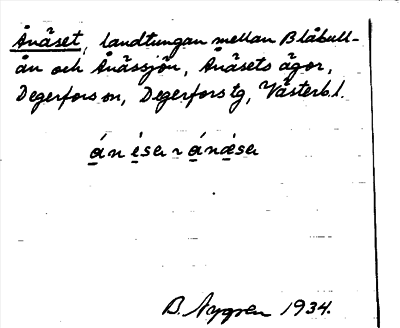 Ånäset, landtungan mellan Blåbull-
ån och Ånässjön, Ånäsets ägor,
Degerfors sn, Degerfors tg, Västerb. l.
B. Nygren 1934.